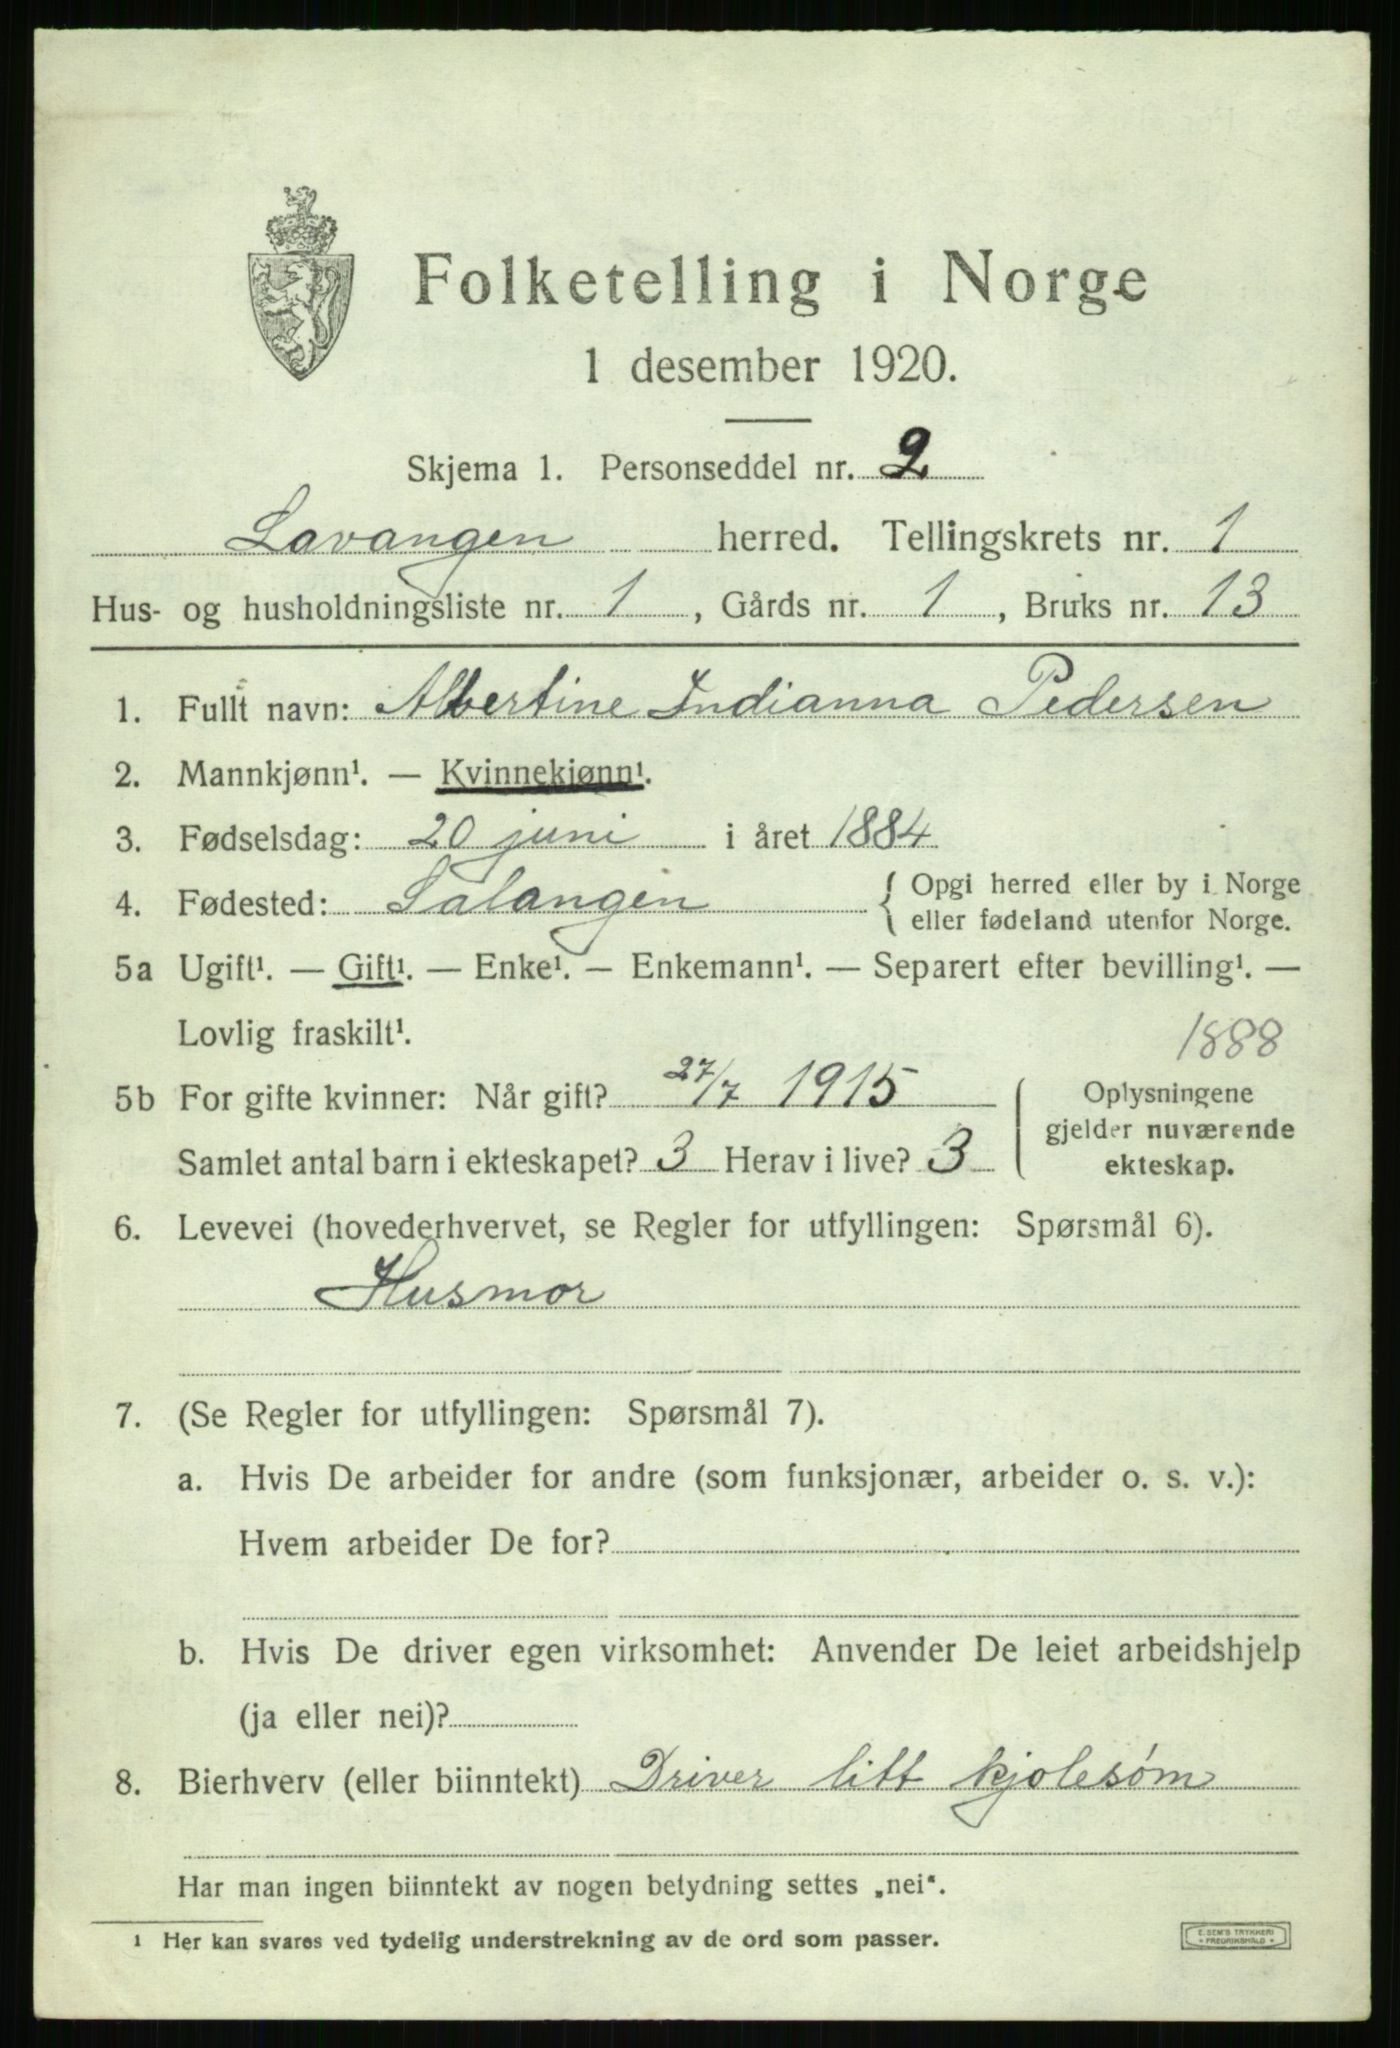 Folketelling i Norge
1 desember 1920.
Skjema 1. Personseddel nr. 2
Lavangen herred. Tellingskrets nr. 1
Hus- og husholdningsliste nr. 1, Gårds nr. 1, Bruks nr. 13
1. Fullt navn: Albertine Indianna Pedersen
2. Mannkjønn¹. — Kvinnekjønn¹.
3. Fødselsdag: 20 juni i året 1884
4. Fødested: Salangen { Opgi herred eller by i Norge
eller fødeland utenfor Norge.
5a Ugift¹. — Gift¹. — Enke¹. — Enkemann¹. — Separert efter bevilling¹. —
Lovlig fraskilt¹.
1888
5b For gifte kvinner: Når gift? 27/7 1915
Samlet antal barn i ekteskapet? 3 Herav i live? 3
Oplysningene
gjelder nuværende
ekteskap.
6. Levevei (hovederhvervet, se Regler for utfyllingen: Spørsmål 6).
Husmor
7. (Se Regler for utfyllingen: Spørsmål 7).
a. Hvis De arbeider for andre (som funksjonær, arbeider o. s. v.):
Hvem arbeider De for?
b. Hvis De driver egen virksomhet: Anvender De leiet arbeidshjelp
(ja eller nei)?
8. Bierhverv (eller biinntekt) Driver litt kjolesøm
Har man ingen biinntekt av nogen betydning settes „nei“.
¹ Her kan svares ved tydelig understrekning av de ord som passer.
E. SEM'S TRYKKERI
FREDRIKSHALD